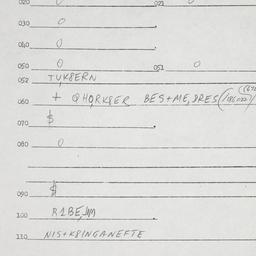 020 0 021 0
030 0
040 0
050 0 051 0
052 TUKBERN
060 + QHORKBER BES+ME,DRES(
070 $
080 0
090 $
100 R1BE,UM
110 NIS+K8INGANEFTE